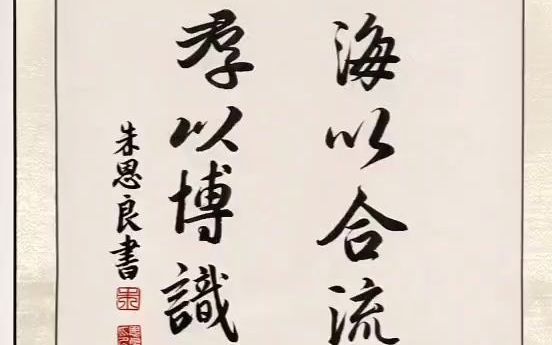 海以合流
以博識
朱恩良書
朱